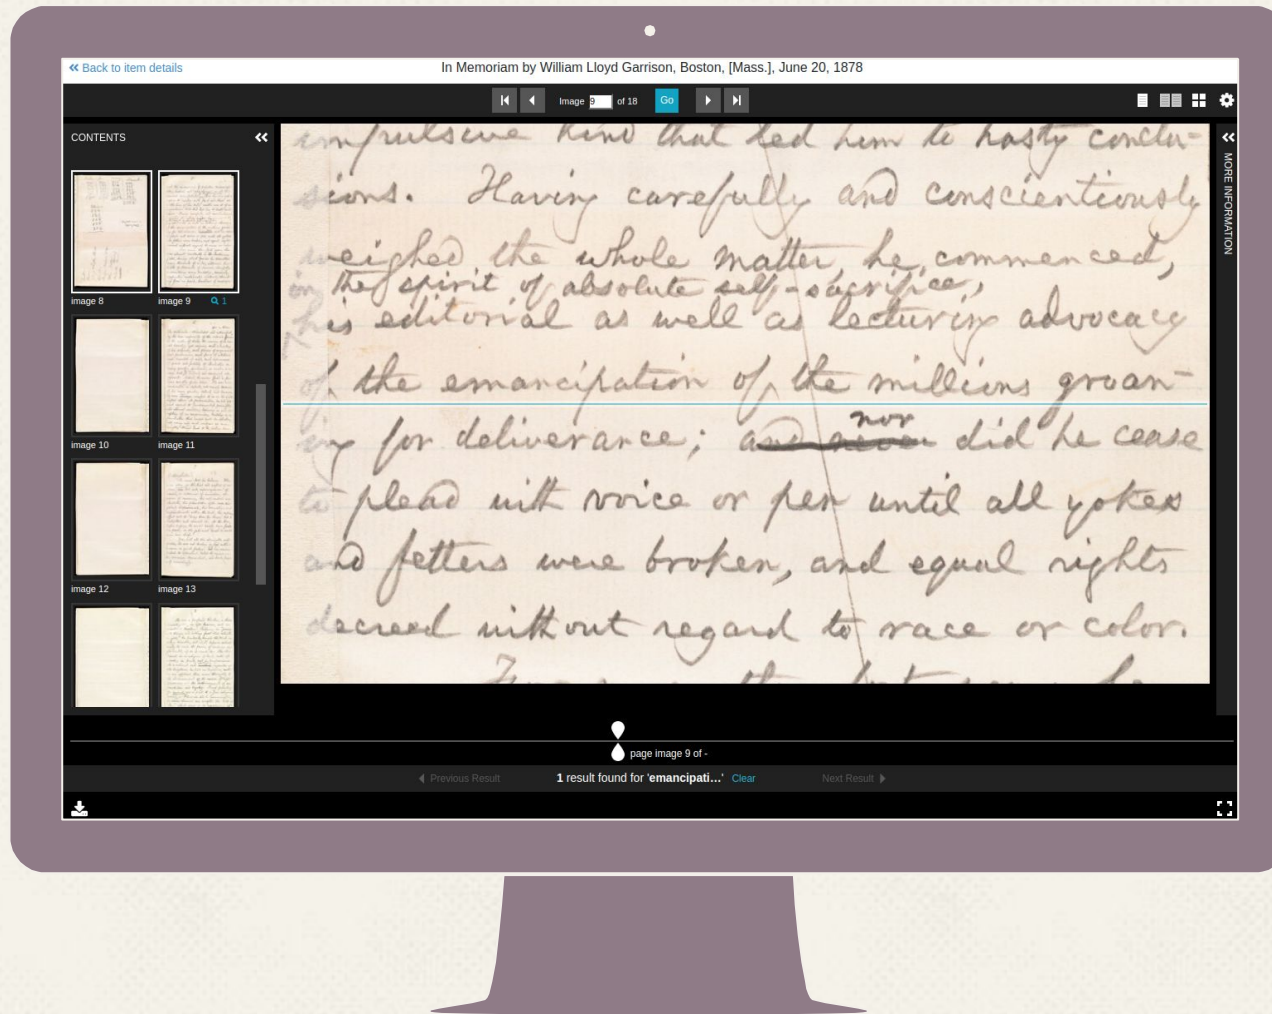 Back to item details
In Memoriam by William Lloyd Garrison, Boston, [Mass.], June 20, 1878
Image 9 of 18 Go
CONTENTS
MORE INFORMATION
image 8
image 9 1
image 10
image 11
image 12
image 13
impulsive kind that led him to hasty conclu-
sions. Having carefully and conscientiously
weighed the whole matter, he commenced,
in the spirit of absolute self-sacrifice,
his editorial as well as lecturing advocacy
of the emancipation of the millions groan-
nor
ing for deliverance; and never did he cease
to plead with voice or pen until all yokes
and fetters were broken, and equal rights
decreed without regard to race or color.
page image 9 of -
Previous Result 1 result found for 'emancipati...' Clear Next Result